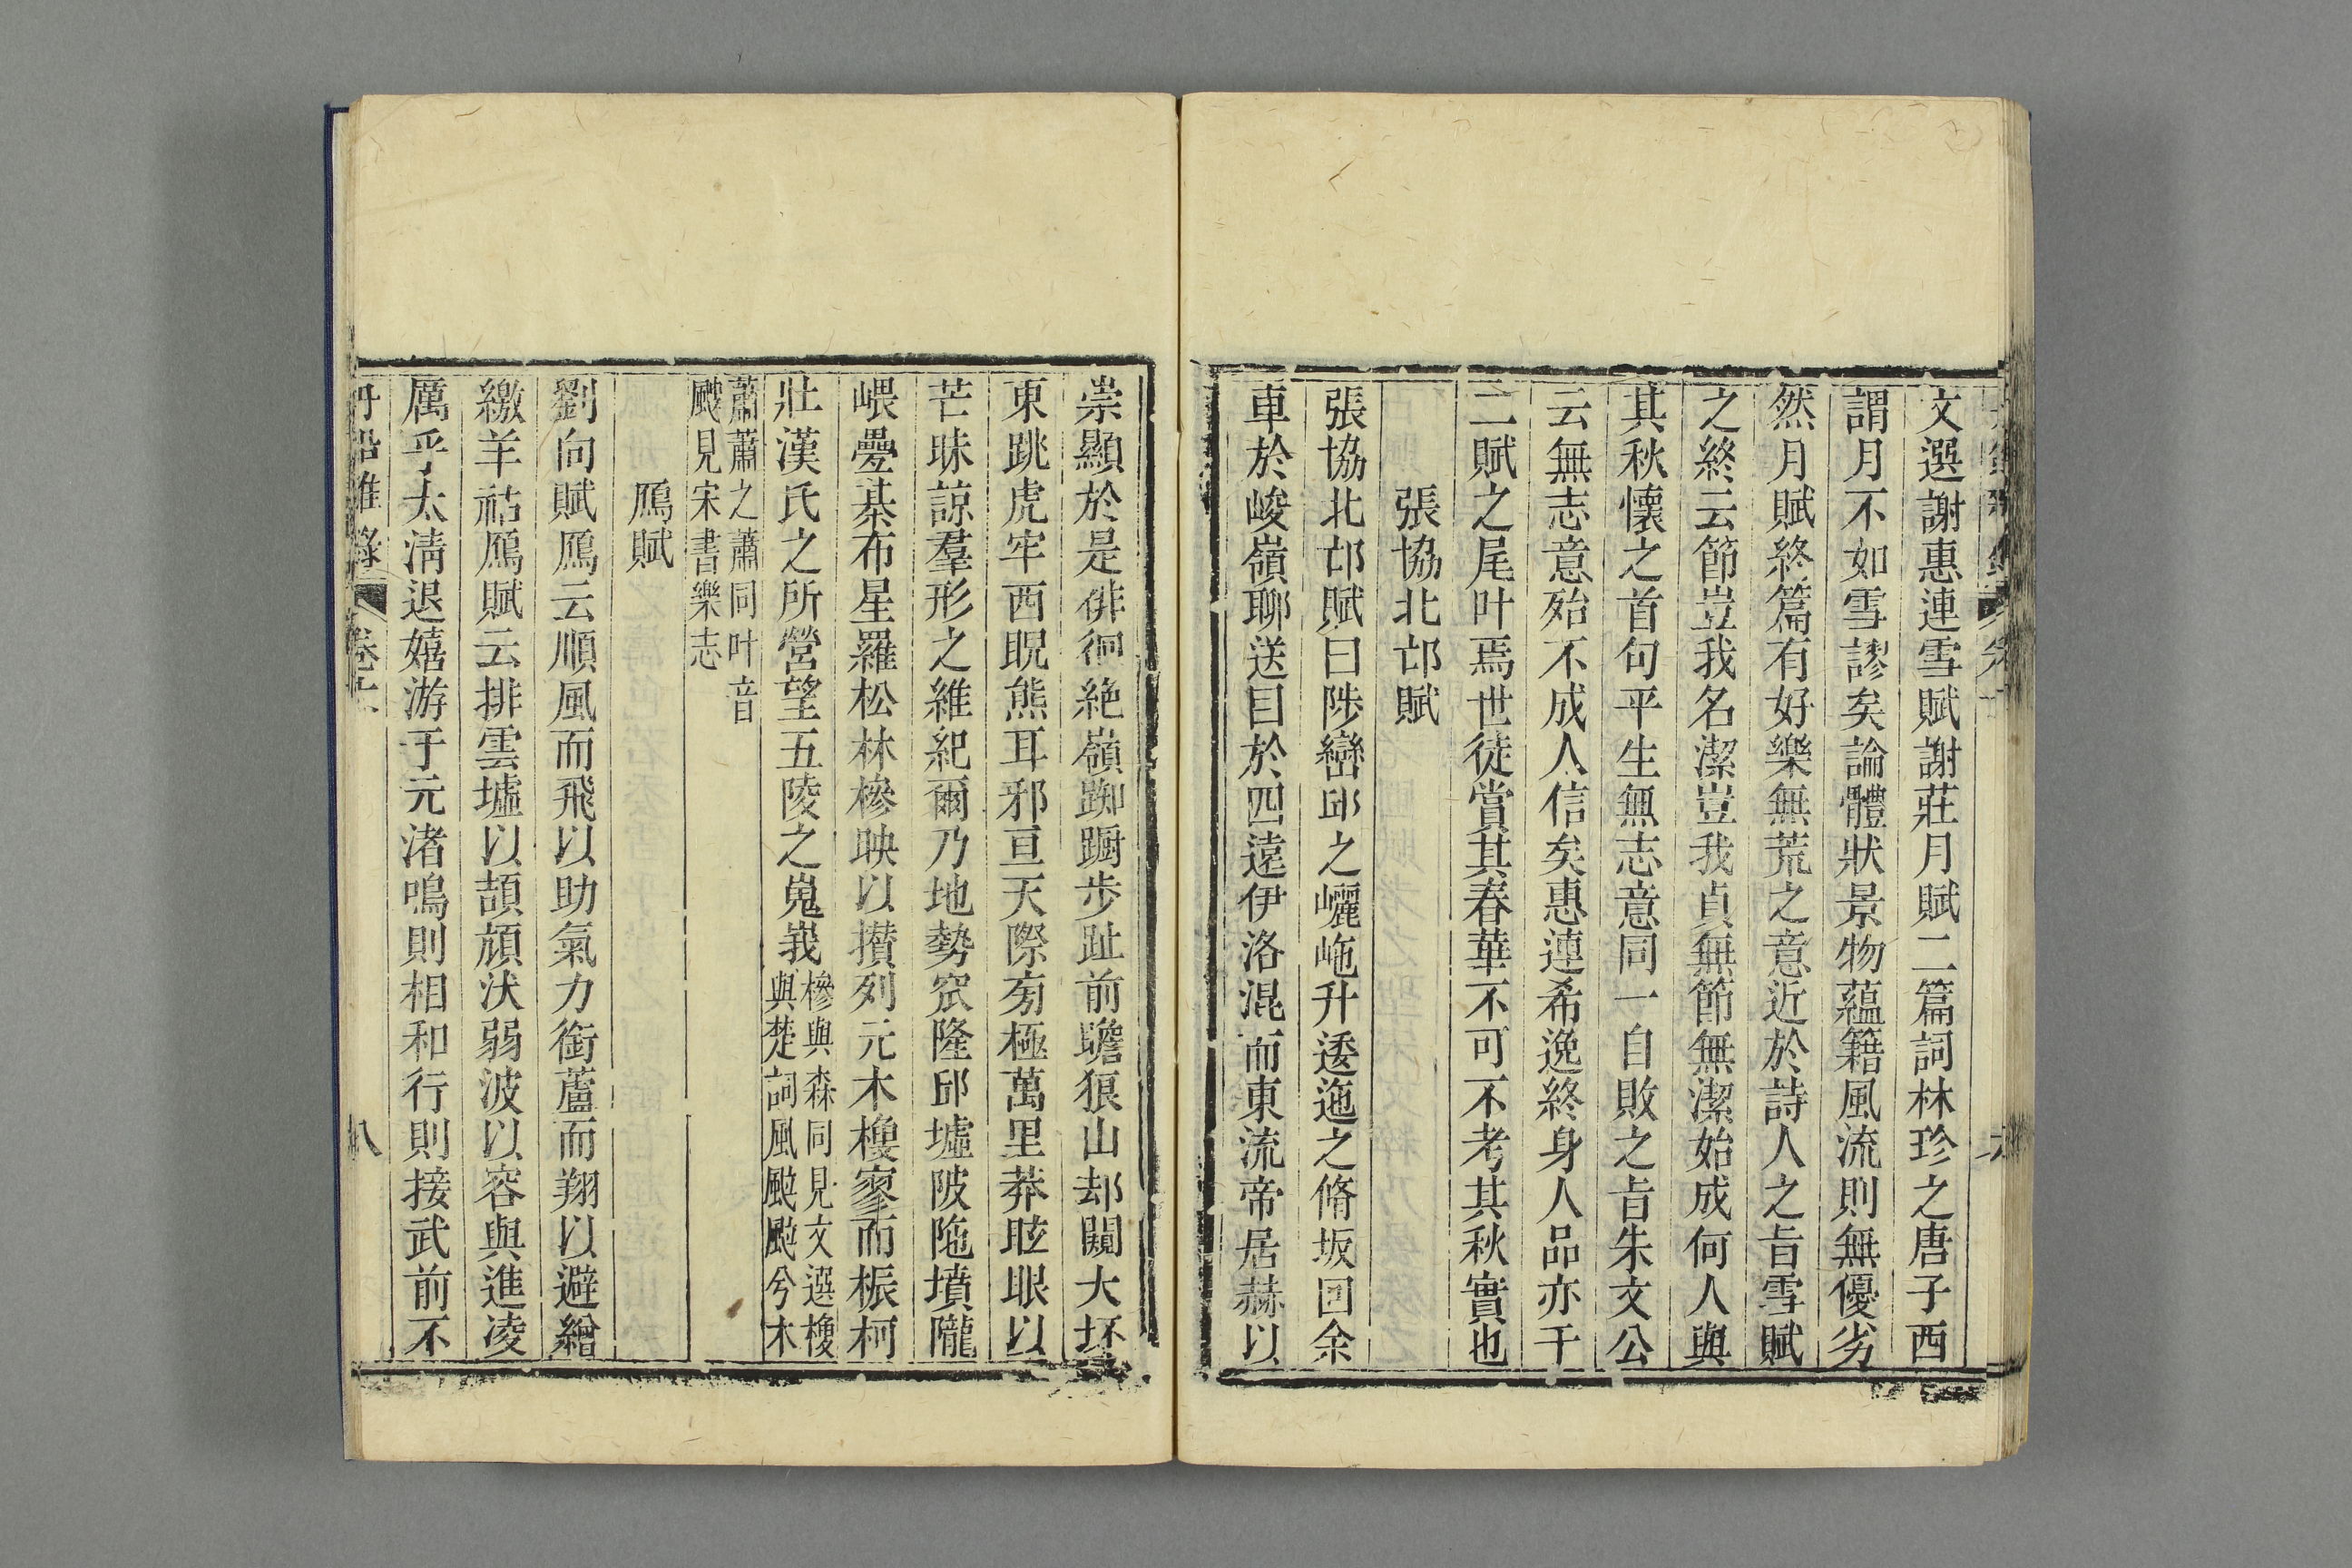 文選謝惠連雪賦謝莊月賦二篇詞林珍之唐子西
謂月不如雪謬矣論體狀景物蘊籍風流則無優劣
然月賦終篇有好樂無荒之意近於詩人之旨雪賦
之終云節豈我名潔豈我貞無節無潔始成何人與
其秋懷之首句平生無志意同一自敗之旨朱文公
云無志意殆不成人信矣惠連希逸終身人品亦于
二賦之尾叶焉世徒賞其春華不可不考其秋實也
張協北邙賦
張協北邙賦曰陟巒邱之𡾊崺升逶迤之脩坂回余
車於峻嶺聊送目於四遠伊洛混而東流帝居赫以
崇顯於是徘徊絶嶺踟躕步趾前瞻狼山却闚大坯
東眺虎牢西睨熊耳邪亘天際旁極萬里莽眩眼以
芒昧諒羣形之維紀爾乃地勢窊隆邱墟陂陁墳隴
㟪疊棊布星羅松林槮映以攅列元木橚寥而振柯
壯漢氏之所營望五陵之嵬峩槮與森同見文選橚
與楚詞風颾颾兮木
蕭蕭之蕭同叶音
颾見宋書樂志
鴈賦
劉向賦鴈云順風而飛以助氣力銜蘆而翔以避繒
繳羊祜鴈賦云排雲墟以頡頏汏弱波以容與進凌
厲乎太淸退嬉游于元渚鳴則相和行則接武前不
丹鉛雜錄 卷十 八